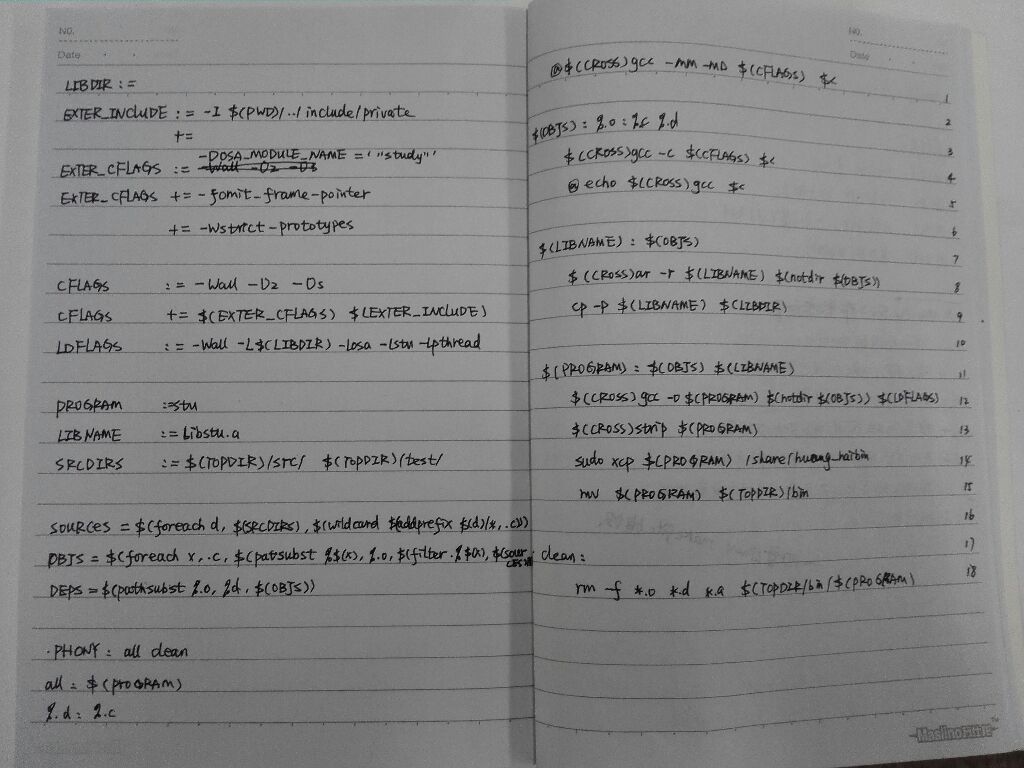 No.
Date
LIBDIR :=
EXTER_INCLUDE := -I $(PWD)/../include/private
+=
-DOSA_MODULE_NAME='"study"'
EXTER_CFLAGS := -Wall -O2 -Os
EXTER_CFLAGS += -fomit-frame-pointer
+= -Wstrict-prototypes
CFLAGS := -Wall -O2 -Os
CFLAGS += $(EXTER_CFLAGS) $(EXTER_INCLUDE)
LDFLAGS := -Wall -L$(LIBDIR) -losa -lstu -lpthread
PROGRAM :=stu
LIBNAME :=libstu.a
SRCDIRS := $(TOPDIR)/src/ $(TOPDIR)/test/
SOURCES = $(foreach d, $(SRCDIRS), $(wildcard $(addprefix $(d)/*, .c)))
OBJS = $(foreach x, .c, $(patsubst %$(x), %.o, $(filter %$(x), $(sour
ces)))
DEPS = $(pathsubst %.o, %d, $(OBJS))
.PHONY: all clean
all: $(PROGRAM)
%.d: %.c
No.
Date
@$(CROSS)gcc -MM -MD $(CFLAGS) $<
1
2
$(OBJS): %.o: %c %.d
3
$(CROSS)gcc -c $(CFLAGS) $<
4
@echo $(CROSS)gcc $<
5
6
$(LIBNAME): $(OBJS)
7
$(CROSS)ar -r $(LIBNAME) $(notdir $(OBJS))
8
cp -p $(LIBNAME) $(LIBDIR)
9
10
$(PROGRAM): $(OBJS) $(LIBNAME)
11
$(CROSS)gcc -o $(PROGRAM) $(notdir $(OBJS)) $(LDFLAGS)
12
$(CROSS)strip $(PROGRAM)
13
sudo xcp $(PROGRAM) /share/huang_haibin
14
mv $(PROGRAM) $(TOPDIR)/bin
15
16
clean:
17
rm -f *.o *.d *.a $(TOPDIR/bin/$(PROGRAM)
18
Maslino